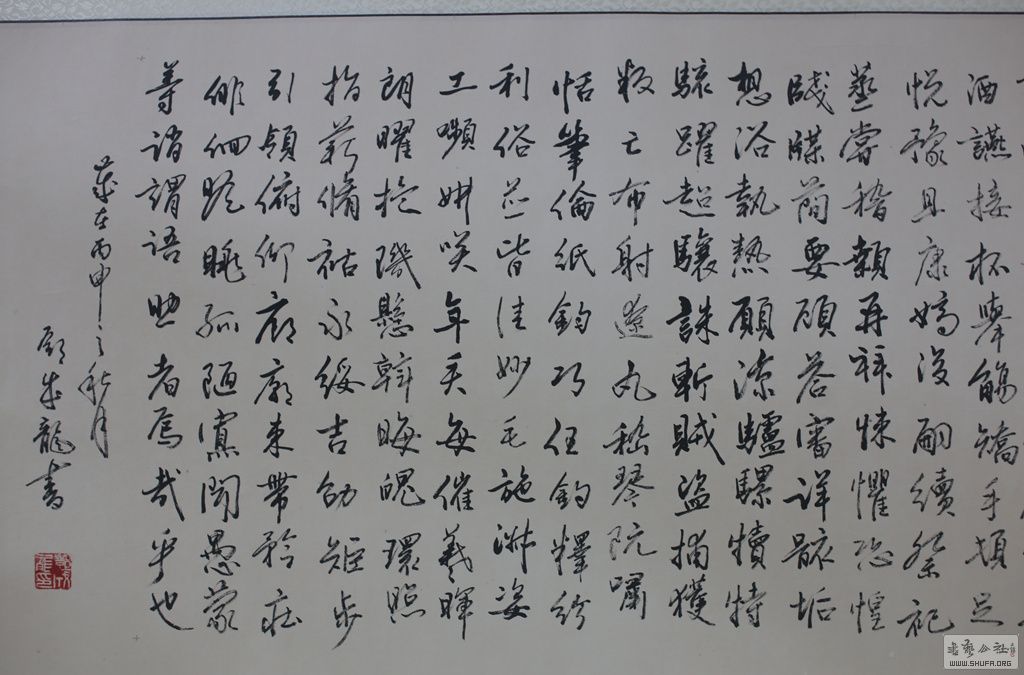 酒讌接杯舉觴矯手頓足
悅豫且康嫡後嗣續祭祀
蒸嘗稽顙再拜悚懼恐惶
牋牒簡要顧答審詳骸垢
想浴執熱願涼驢騾犢特
駭躍超驤誅斬賊盜捕獲
叛亡布射遼丸嵇琴阮嘯
恬筆倫紙鈞巧任釣釋紛
利俗並皆佳妙毛施淑姿
工嚬妍咲年矢每催羲暉
朗曜旋璣懸斡晦魄環照
指薪脩祜永綏吉劭矩步
引領俯仰廊廟束帶矜莊
俳徊瞻眺孤陋寡聞愚蒙
等誚謂語助者焉哉乎也
歲在丙申之秋月
顧成龍書
WWW.SHUFA.ORG